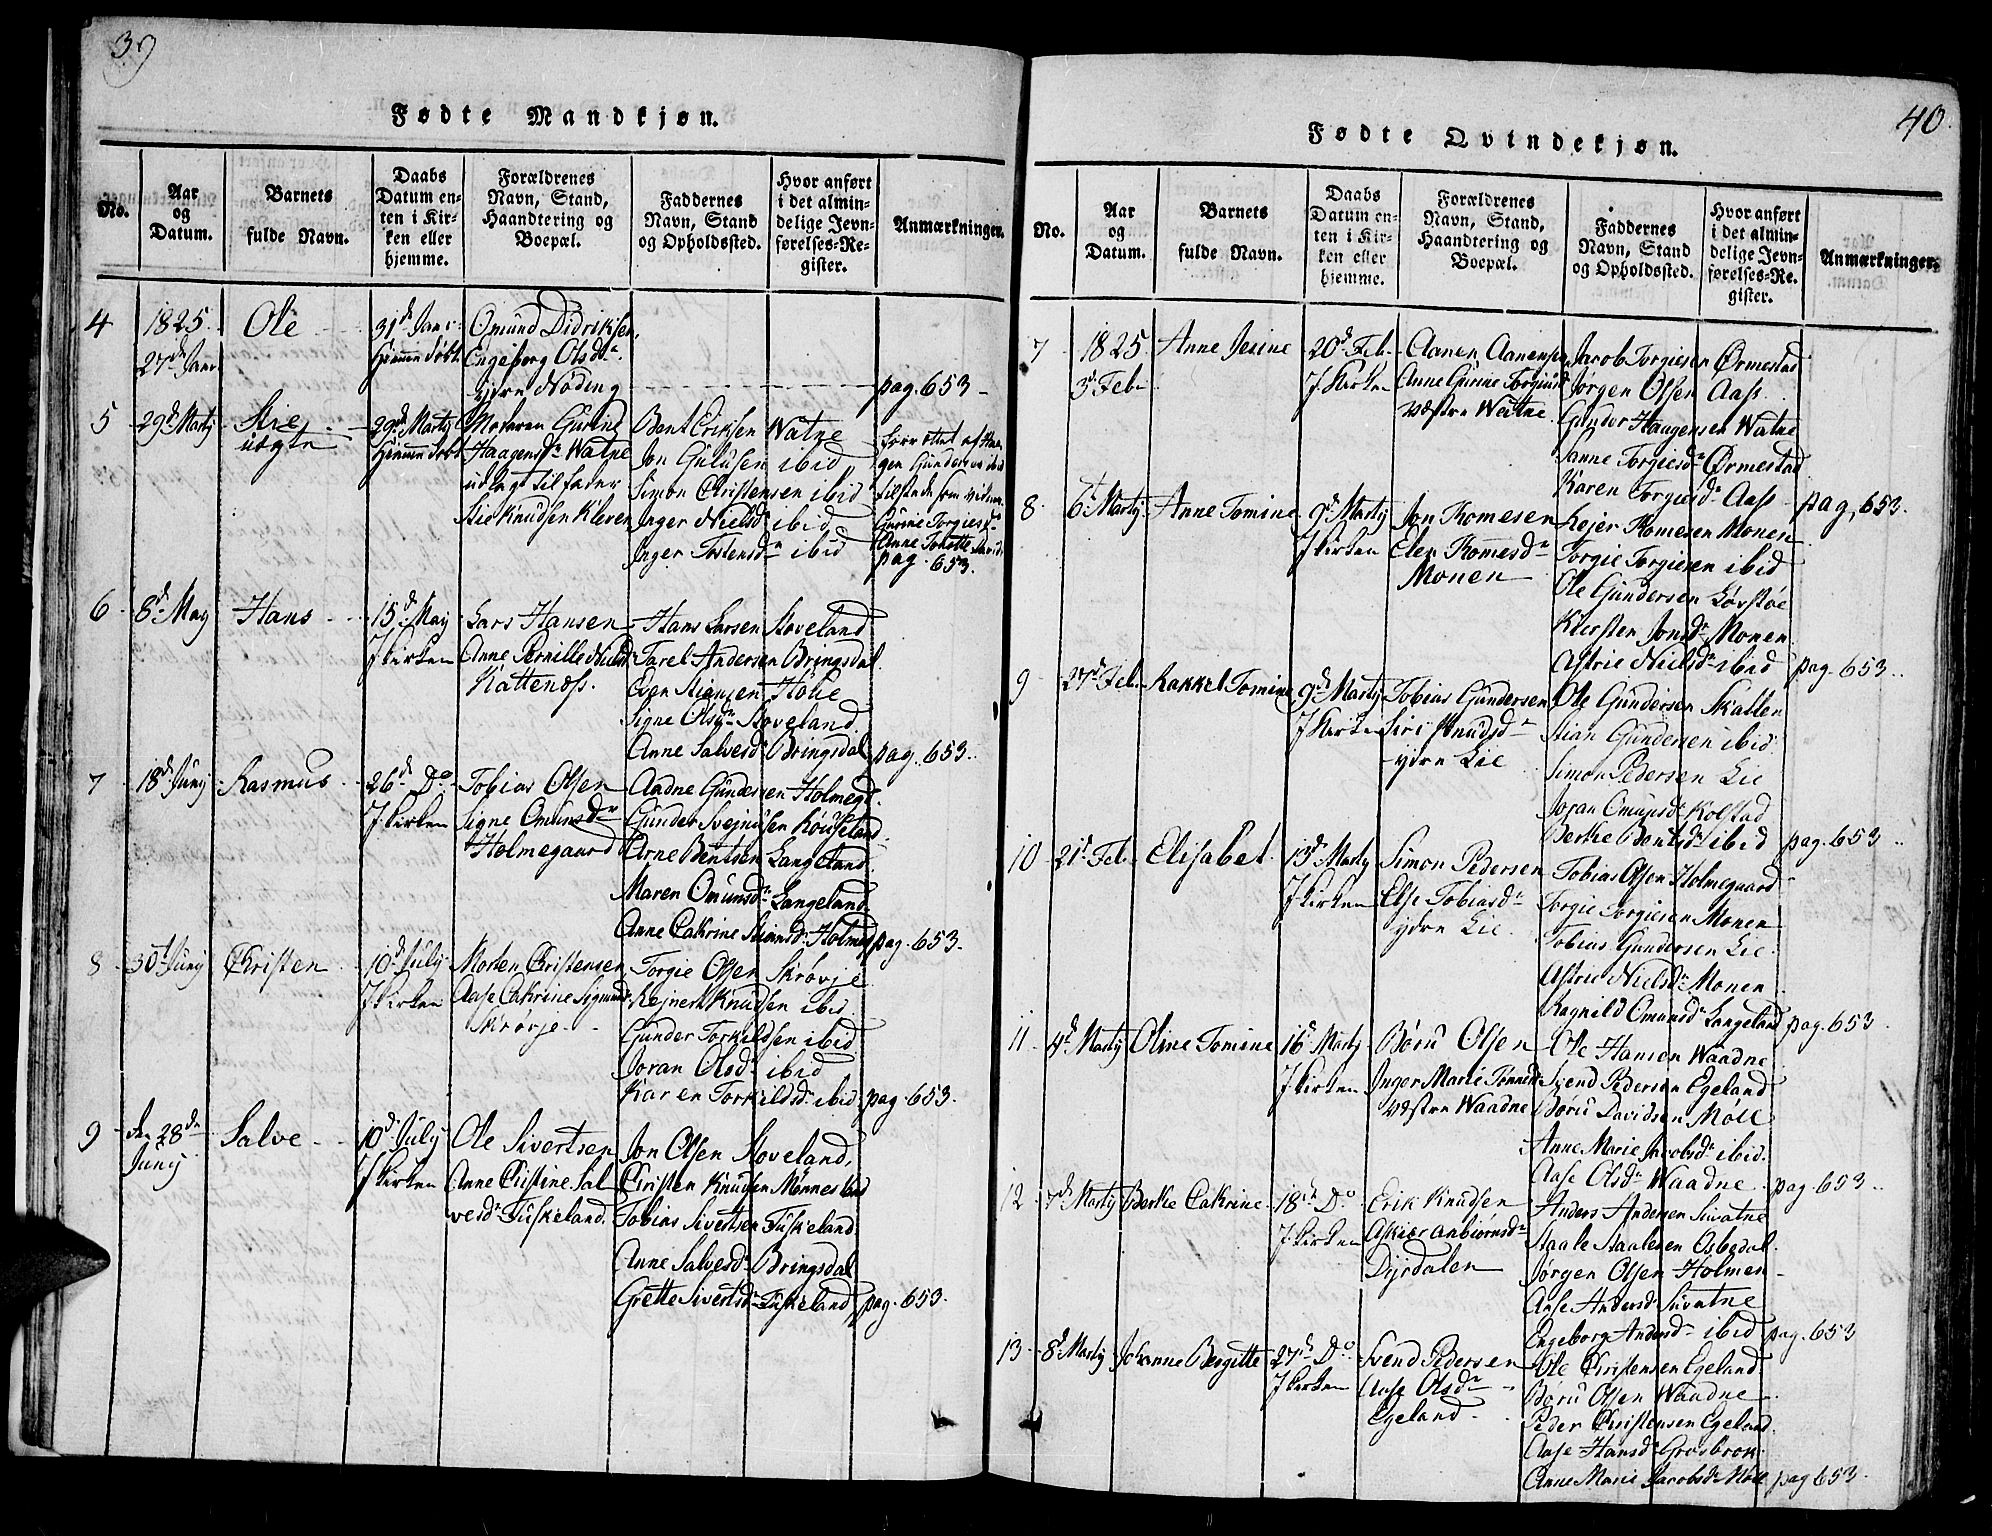 39
Fødte Mandkjøn.
No.
Aar
og
Datum.
Barnets
fulde Navn.
Daabs
Datum en-
ten i Kir-
ken eller
hjemme.
Forældrenes
Navn, Stand,
Haandtering og
Boepæl.
Faddernes
Navn, Stand
og Opholdssted.
Hvor anført
i det almin-
delige Jevn-
førelses-Re-
gister.
Anmærkninger.
4
1825
27de Janr
Ole
31d Janr
hjemme døbt
Omund Didriksen
Engeborg Olsdr
ydre Nøding
pag. 653
5
29d Marty
Stie
uægte
29d Marty
hjemme døbt
Moderen Gurine
Haagensdr Watne
udlagt til fader
Stie Knudsen Kleven
Bent Eriksen Watne
Jon Gulusen ibid
Simon Christensen ibid
Inger Nielsdr ibid
Inger Tostensdr ibid
pag. 653.
6
8d May
Hans
15d May
I kirken
Lars Hansen
Anne Pernille Nielsd
Kattenøss.
Hans Larsen Stoveland
Tarel Andersen Bringsdal
Even Stiansen Holie
Signe Olsdr Stoveland
Anne Salvesdr Bringsdal
pag. 653.
7
18d Juny
Rasmus
26d Do
I kirken
Tobias Olsen
Signe Omunsdr
Holmegaard
Aadne Gundersen Holmegd
Gunder Svejnusen Røuseland
Arne Bentsen Langeland
Maren Omunsdr Langeland
Anne Catrine Stiansdr Holmeg
pag. 653.
8
30d Juny
Christen
10d July
I kirken
Morten Christensen
Aase Catrine Sigmunds
Skrøvje
Torgie Olsen Skrøvje
Rejnert Knudsen ibid
Gunder Torkildsen ibid
Joran Olsdr ibid
Karen Torkildsdr ibid
pag. 653.
9
den 28de
Juny
Salve
10d July
I kirken
Ole Sivertsen
Anne Cristine Sal
vesdr Tuskeland
Jon Olsen Stoveland
Christen Knudsen Mønnesland
Tobias Sivertsen Tuskeland
Anne Salvesdr Bringsdal
Grette Sivertsdr Tuskeland
pag. 653.
40
Fødte Qvindekjøn.
No.
Aar
og
Datum.
Barnets
fulde Navn.
Daabs
Datum en-
ten i Kir-
ken eller
hjemme.
Forældrenes
Navn, Stand,
Haandtering og
Boepæl.
Faddernes
Navn, Stand
og Opholdssted.
Hvor anført
i det almin-
delige Jevn-
førelses-Re-
gister.
Anmærkninger.
7
1825
3d Feb
Anne Jesine
20d Feb
I kirken
Aanen Aanensen
Anne Gurine Torgiusd
Væstre Watne
Jacob Torgiesen Ørmestad
Jørgen Olsen Aass
Gunder Haagensen Watne
Sanne Torgiesdr Ørmestad
Karen Torgiesdr Aass
pag, 653.
8
6d Marty
Anne Tomine
9d Marty
I kirken
Jon Tromesen
Elen Tromesdr
Monen
Rejer Tromesen Monen
Torgie Torgiesen ibid
Ole Gundersen Løvstøe
Kiersten Jonsdr Monen
Astrie Nielsdr ibid
pag. 653.
9
27d Feb.
Rakkel Tomine
9d Marty
I kirken
Tobias Gundersen
Siri Knudsdr
ydre Lie
Ole Gundersen Skallen
Stian Gundersen ibid
Simon Pedersen Lie
Joran Omundsdr Kolstad
Berte Bentsdr ibid
pag. 653
10
21d Feb.
Elisabet
13d Marty
I kirken
Simon Pedersen
Else Tobiasdr
ydre Lie
Tobias Olsen Holmegaard
Torgie Torgiesen Monen
Tobias Gundersen Lie
Astrie Nielsdr Monen
Ragnild Omunsdr Langeland
pag. 653
11
4d Marty
Oline Tomine
16d Marty
I kirken
Børu Olsen
Inger Marie Tønnesd
Væstre Waadne
Ole Hansen Waadne
Svend Pedersen Egeland
Børu Davidsen Møll
Anne Marie Jacobsdr ibid
Aase Olsdr Waadne
pag. 653
12
7d Marty
Berte Catrine
18d Do
I kirken
Erik Knudsen
Askier Anbiørnsdr
Dyrdalen
Anders Andersen Suvatne
Staale Staalesen Osbedal
Jørgen Olsen Holmen
Aase Andersdr Suvatne
Engeborg Andersdr ibid
pag. 653
13
8d Marty
Johanne Bergitte
27d Do
I kirken
Svend Pedersen
Aase Olsdr
Egeland
Ole Christensen Egeland
Børu Olsen Waadne
Peder Christensen Egeland
Aase Hansdr Grosbrok
Anne Marie Jacobsdr Møll
pag 653